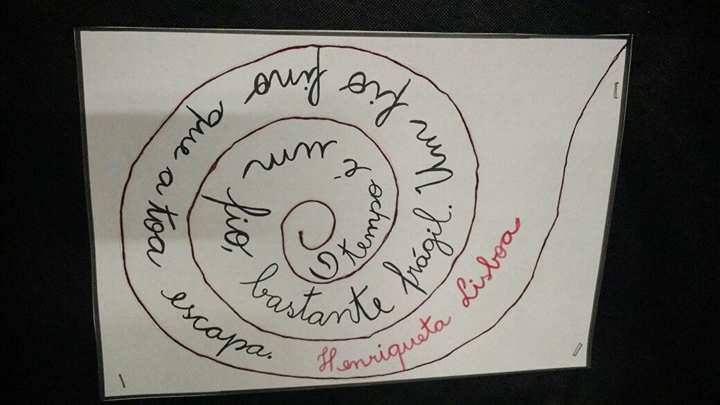 O tempo é um fio, bastante frágil. Um fio fino que a toa escapa.
Henriqueta Lisboa